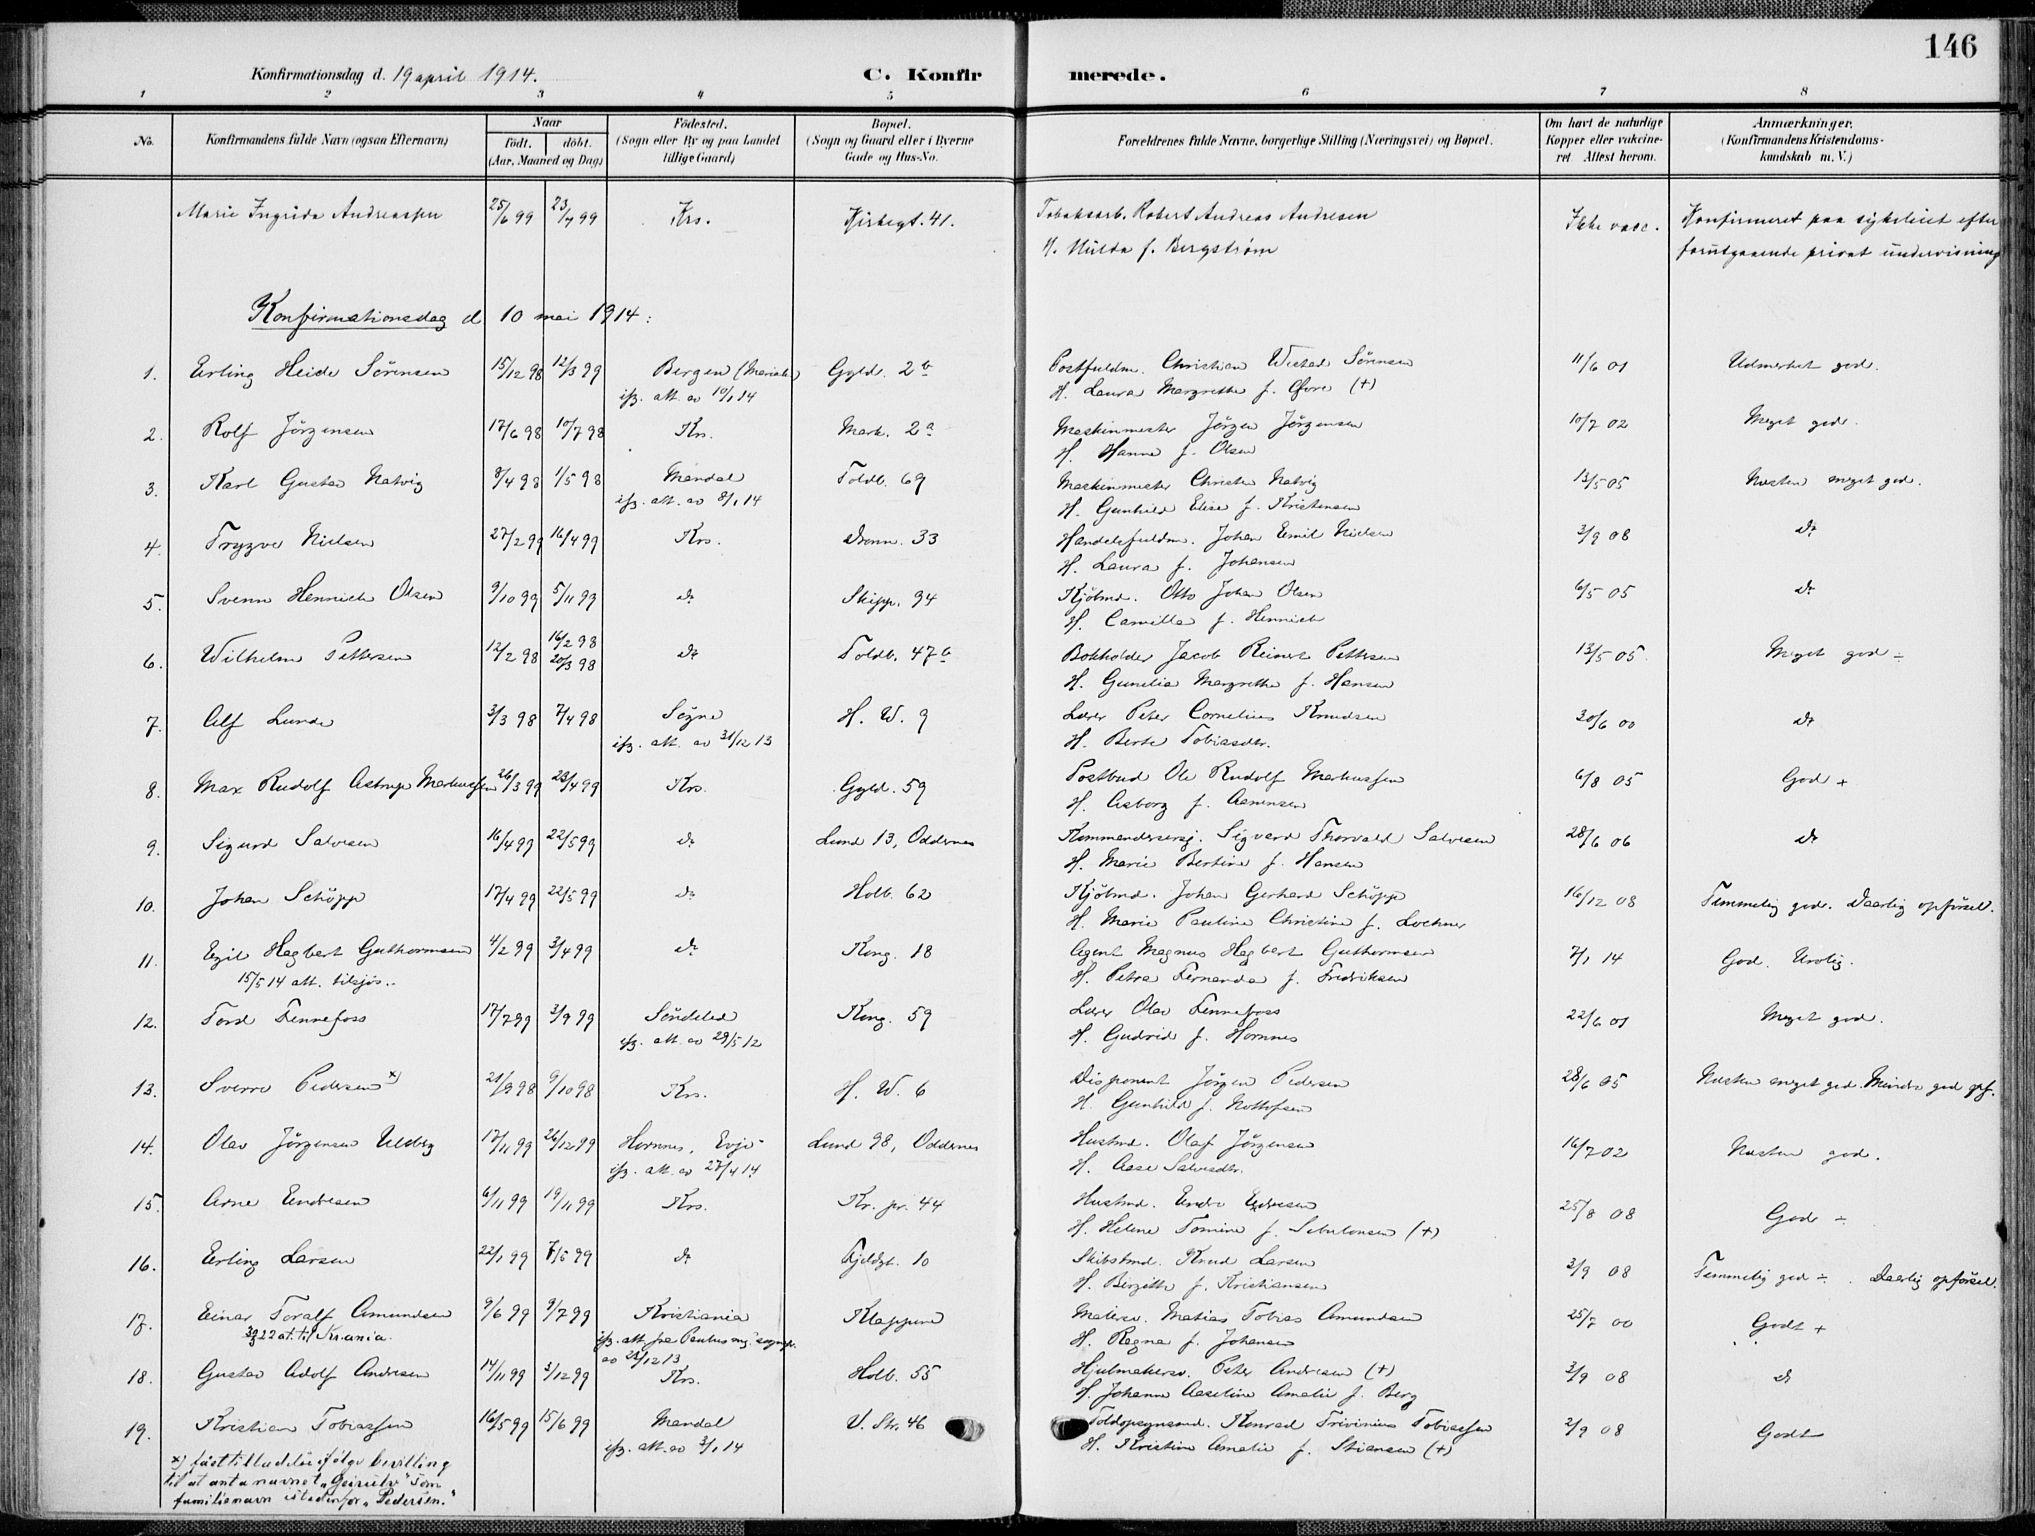 146
Konfirmationsdag d. 19 april 1914.
C. Konfirmerede.
1 2 3 4 5 6 7 8
No. | Konfirmandens fulde Navn (ogsaa Efternavn) | Naar født. døbt. (Aar, Maaned og Dag) | Fødested. (Sogn eller By og paa Landet tillige Gaard) | Bopæl. (Sogn og Gaard eller i Byerne Gade og Hus-No. | Forældrenes fulde Navne, borgerlige Stilling (Næringsvei) og Bopæl. | Om havt de naturlige Kopper eller vakcineret Attest herom. | Anmærkninger, (Konfirmandens Kristendomskundskab m. V.)
Marie Ingrida Andreassen 25/6 99 23/7 99 Krs. Kirkegt. 41. Tobaksarb. Robert Andreas Andresen Ikke vacc. Konfirmeret paa sykeleiet efter
H. Hulda f. Bergstrøm forutgaaende privat undervisning
Konfirmationsdag d 10 mai 1914:
1. Erling Heide Sørensen 15/12 98 12/3 99 Bergen (Mariak.) Gyld. 2b Postfuldm. Christian Wested Sørensen 11/6 01 Udmerket god.
ifg. att. av 10/1 14 H. Laura Margrethe f. (+)
2. Rolf Jörgensen 17/6 98 10/7 98 Krs. Mark. 2a Maskinmester Jörgen Jörgensen 10/7 02 Meget god.
H. Hanna f. Olsen
3. Karl Gustav Natvig 8/4 98 1/5 98 Mandal Toldb. 69 Maskinmester Christen Natvig 13/5 05 Næsten meget god.
ifg. att. av 8/1 14 H. Gunhild Elise f. Kristensen
4. Trygve Nielsen 27/2 99 16/4 99 Krs. Dronn. 33 Handelsfuldm. Johan Emil Nielsen 3/9 08 do
H. Laura f. Johansen
5. Svenn Hennich Olsen 9/10 99 5/11 99 do Skipp. 94 Kjöbmd. Otto Johan Olsen 6/5 05 do
H. Camilla f. Hennich
6. Wilhelm Pettersen 12/2 98 16/2 98 20/3 98 do Toldb. 47b Bokholder Jacob Reinert Pettersen 13/5 05. Meget god ÷
H. Gunelia Margrethe f. Hansen
7. Alf Lunde 3/3 98 7/4 98 Søgne H. W. 9 Lærer Peter Cornelius Knudsen 30/6 00 do
ifg. att. av 31/12 13 H. Berte Tobiasdtr.
8. Max Rudolf Astrup Markussen 26/3 99 23/4 99 Krs. Gyld. 59 Postbud Ole Rudolf Markussen 6/8 05 God +
H. Aasborg f. Aanensen
9. Sigurd Salvesen 16/4 99 22/5 99 do Lund 13, Oddernes Kommandersersj. Sigvard Thorvald Salvesen 28/6 06 do
H. Marie Bertine f. Hansen
10. Johan Schöpp 17/4 99 22/5 99 do Holb. 62 Kjöbmd. Johan Gerhard Schöpp 16/12 08 Temmelig god. Daarlig opförsel.
H. Marie Pauline Christine f. Lochner
11. Egil Hagbert Guthormsen 4/2 99 3/4 99 do Kong. 18 Agent Magnus Hagbert Guthormsen 7/1 14 God. Urolig.
15/5 14 att. tilsjøs.. H. Petra Fernanda f. Fredriksen
12. Tord Fennefoss 17/7 99 3/9 99 Søndeled Kong. 59 Lærer Olav Fennefoss 22/6 01 Meget god.
ifg. att. av 29/5 12 H. Gudrid f. Hornnes
13. Sverre Pedersen x) 21/9 98 9/10 98 Krs. H. W. 6 Disponent Jörgen Pedersen 28/6 05 Næsten meget god. Mindre god opf.
H. Gunhild f. Nottofsen
14. Olav Jörgensen Uldberg 17/11 99 26/12 99 Hornnes, Evje Lund 98, Oddernes Husmd. Olaf Jörgensen 16/7 02 Næsten god.
ifg. att. av 27/4 14 H. Aase Salvesdtr.
15. Arne Endresen 6/11 99 19/11 99 Krs. Kr. pr. 44 Husmd. Endre Endresen 25/8 08 God ÷
H. Helene Tomine f. Sebulonsen (+)
16. Erling Larsen 22/1 99 7/5 99 do Gyldgt. 10 Skibstmd. Knud Larsen 3/9 08 Temmelig god ÷. Daarlig opförsel.
H. Birgitte f. Kristiansen
17. Einar Toralf Amundsen 9/6 99 9/7 99 Kristiania Klappene Malersv. Matias Tobias Amundsen 25/7 00 Godt +
22 at. til Kr.ania. ifg. att. fra Paulus mgt. sognepr. av 23/12 13 H. Ragna f. Johansen
18. Gustav Adolf Andresen 14/11 99 3/12 99 Krs. Holb. 55 Hjulmakersv. Peter Andresen (+) 3/9 08 do
H. Johanne Aaseline Amalie f. Berg
19. Kristian Tobiassen 16/5 99 15/6 99 Mandal V. Str. 46 Toldopsynsmd. Konrad Trivinius Tobiassen 2/9 08 Godt
ifg. att. av 3/1 14 H. Kristine Amalie f. Stiansen (+)
x) faat tilladelse ifölge bevilling
til at anta navnet „Geirulv" som
familienavn istedenfor „Pedersen."